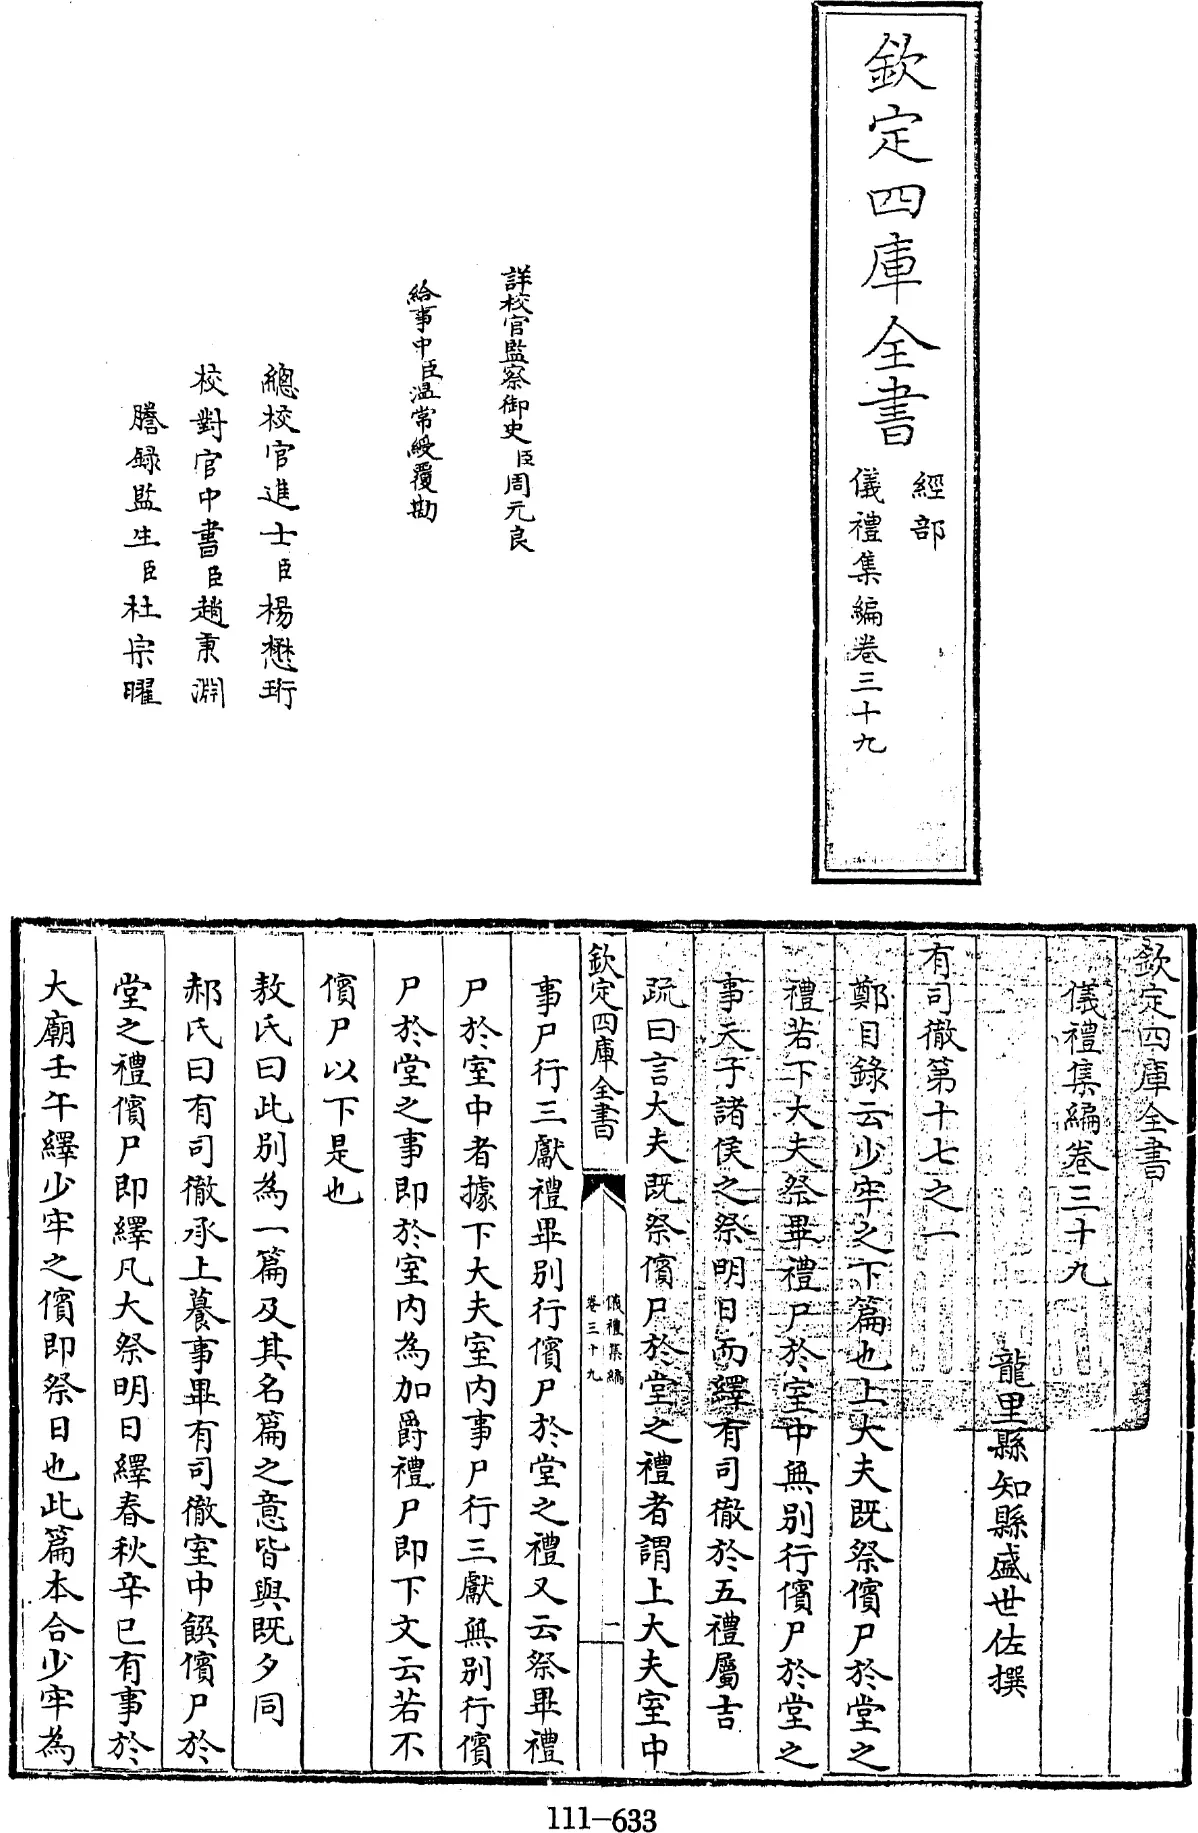 欽定四庫全書
經部
儀禮集編卷三十九
詳校官監察御史臣周元良
給事中臣溫常綬覆勘
總校官進士臣楊懋珩
校對官中書臣趙秉淵
謄錄監生臣杜宗曜
欽定四庫全書
儀禮集編卷三十九
龍里縣知縣盛世佐撰
有司徹第十七之一
鄭目錄云少牢之下篇也上大夫既祭儐尸於堂之
禮若下大夫祭畢禮尸於室中無別行儐尸於堂之
事天子諸侯之祭明日而繹有司徹於五禮屬吉
疏曰言大夫既祭儐尸於堂之禮者謂上大夫室中
欽定四庫全書
儀禮集編
卷三十九
一
事尸行三獻禮畢別行儐尸於堂之禮又云祭畢禮
尸於室中者據下大夫室內事尸行三獻無別行儐
尸於堂之事即於室內為加爵禮尸即下文云若不
儐尸以下是也
敖氏曰此別為一篇及其名篇之意皆與既夕同
郝氏曰有司徹承上養事畢有司徹室中饌儐尸於
堂之禮儐尸即繹凡大祭明日繹春秋辛巳有事於
大廟壬午繹少牢之儐即祭日也此篇本合少牢為
111-633